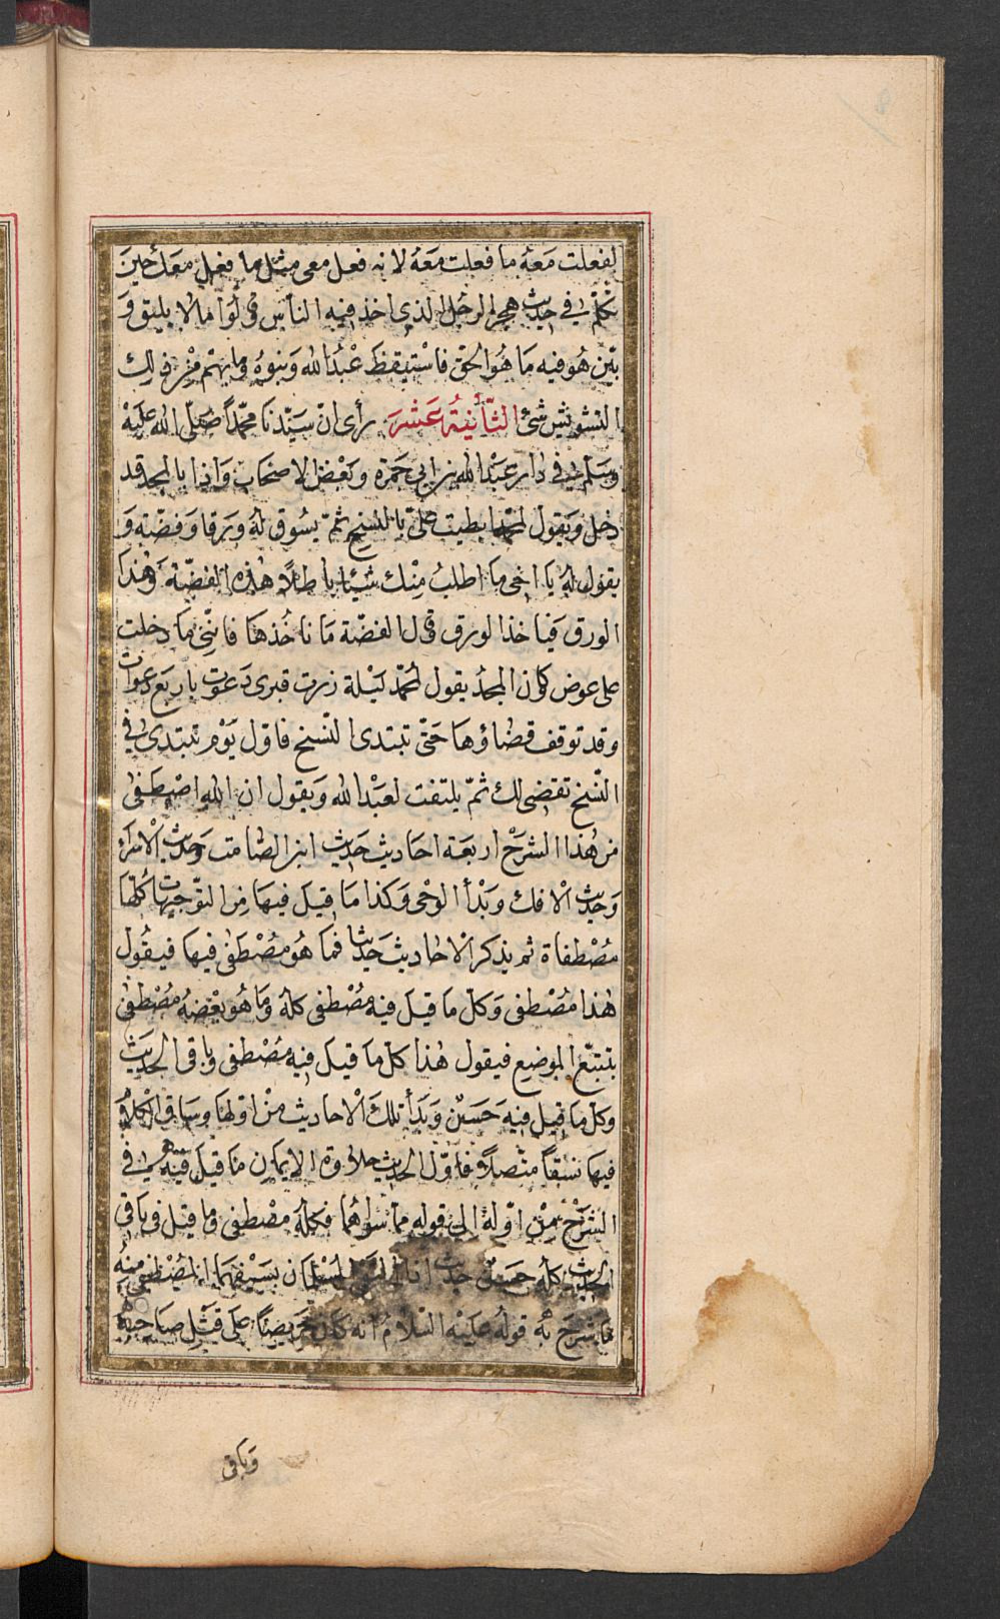 لفعلت معه ما فعلت معه لانه فعل معى مثل ما فعل معك حين
تكلم في حديث هجر الرجل الذي اخذ فيه الناس وقالوا مالا يليق و
بيّن هو فيه ما هُوَ الحق فاستيقظ عبد الله وبنوه وما بهم من ذلك
التشويش شئ الثّانيةُ عَشَرَ رأى انّ سيّدنا محمّداً صلّى الله عليه
وسلم في دار عبد الله بن ابي جمرة وبعض الاصحاب واذا بالمجد قد
دخل ويقول لمّا بطيت علىّ بالنسخ ثمّ يسوق له ورقا وفضّة و
يقول له يا اخى ما اطلب منك شيئا باطلاً هذه الفضّة وهذا
الورق فياخذ الورق وقال الفضّة ما ناخُذها فانّى ما دخلت
على عوض كان المجد يقول لمحمّد ليلة زرت قبرى دعوت باربع دعوات
وقد توقف قضاؤها حتّى تبتدى النّسخ فاوّل يوم تبتدى في
النّسخ تقضى لك ثمّ يلتفت لعبد الله ويقول ان الله اصطفى
من هٰذا الشرح اربعة احاديث حديث ابن الصّامت وحديث الاسراء
وحديث الافك وبدأ الوحى وكذا ما قيل فيها من التّوجيهات كلّها
مُصْطفاة ثم يذكر الاحاديث حديثا فما هو مُصْطفى فيها فيقول
هٰذا مُصْطفى وكلّ ما قيل فيه مُصْطفى كله وما هو بعضه مُصْطفى
يتتبّع الموضع فيقول هٰذا كلّ ما قيل فيه مُصْطفى وباقى الحديث
وكل ما قيل فيه حَسَنٌ وبدأ تلك الاحاديث من اوّلها وساق الكلام
فيها نسقاً متّصلاً فاوّل الحديث حلاوة الايمان ما قيل فيه في
الشرح من اوّله الى قوله ممّا سواهما فكله مُصْطفى وما قيل في باقى
الحديث كله حسنٌ حديث اذا التقى المسْلمان بسَيْفهما المُصْطفى منه
ما شرح به قوله عليه السّلام انه كان حريصاً على قتل صاحبه
وباقى